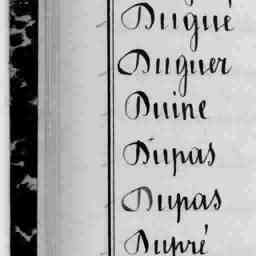 Dugué
Duguer
Duine
Dupas
Dupas
Dupré